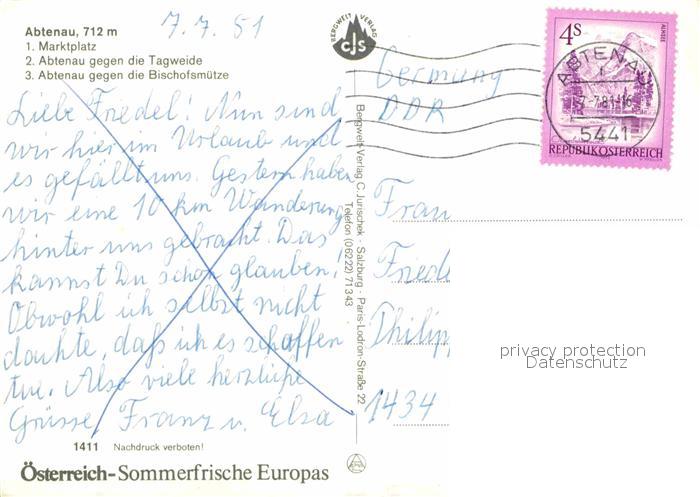 Abtenau, 712 m
1. Marktplatz
2. Abtenau gegen die Tagweide
3. Abtenau gegen die Bischofsmütze
7. 7. 81
BERGWELT VERLAG
CJS
Liebe Friedel! Nun sind
wir hier im Urlaub und
es gefällt uns. Gestern haben
wir eine 10 km Wanderung
hinter uns gebracht. Das
kannst Du schon glauben,
Obwohl ich selbst nicht
dachte, daß ich es schaffen
tue. Also viele herzliche
Grüsse Franz u. Elsa
1411 Nachdruck verboten!
Österreich-Sommerfrische Europas
Bergwelt-Verlag C. Jurischek - Salzburg - Paris-Lodron-Straße 22
Telefon (06222) 71343
4s
ALMSEE
REPUBLIK ÖSTERREICH
ABTENAU
-7.-7.81-16
5441
Germany
DDR
Frau
Friede
Philipp
1434
privacy protection
Datenschutz